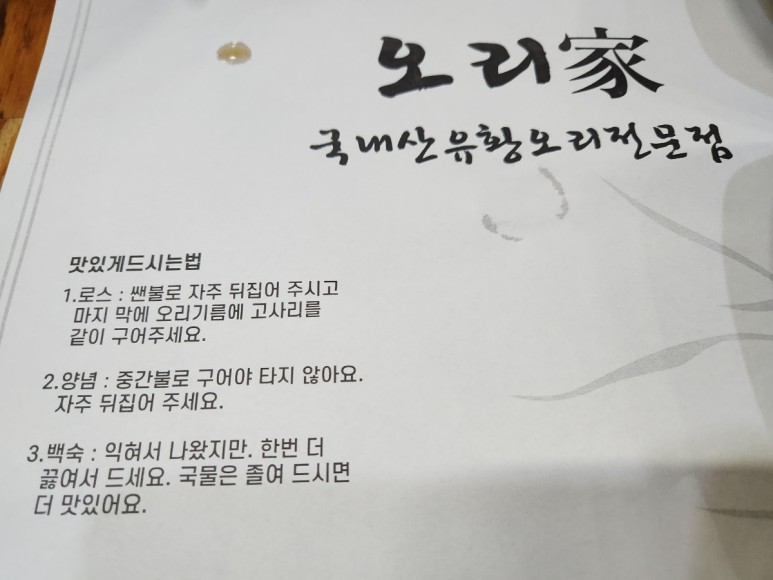 오리家
국내산유황오리전문점
맛있게드시는법
1.로스 : 쌘불로 자주 뒤집어 주시고
마지 막에 오리기름에 고사리를
같이 구어주세요.
2.양념 : 중간불로 구어야 타지 않아요.
자주 뒤집어 주세요.
3.백숙 : 익혀서 나왔지만. 한번 더
끓여서 드세요. 국물은 졸여 드시면
더 맛있어요.